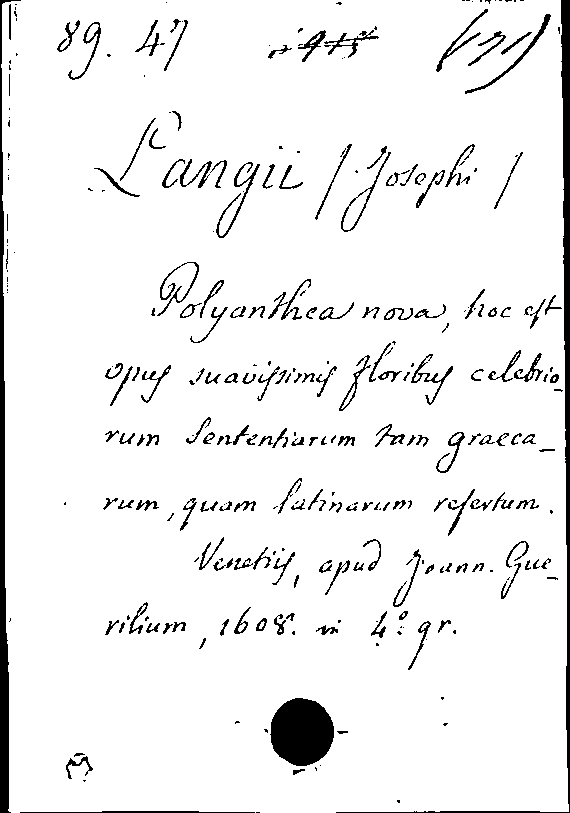 89. 47
Langii / Josephi /
Polyanthea nova, hoc est
opus suavissimis floribus celebrio-
rum Sententiarum tam graeca-
rum, quam latinarum refertum.
Venetiis, apud Joann. Gue-
rilium, 1608. in 4º. gr.